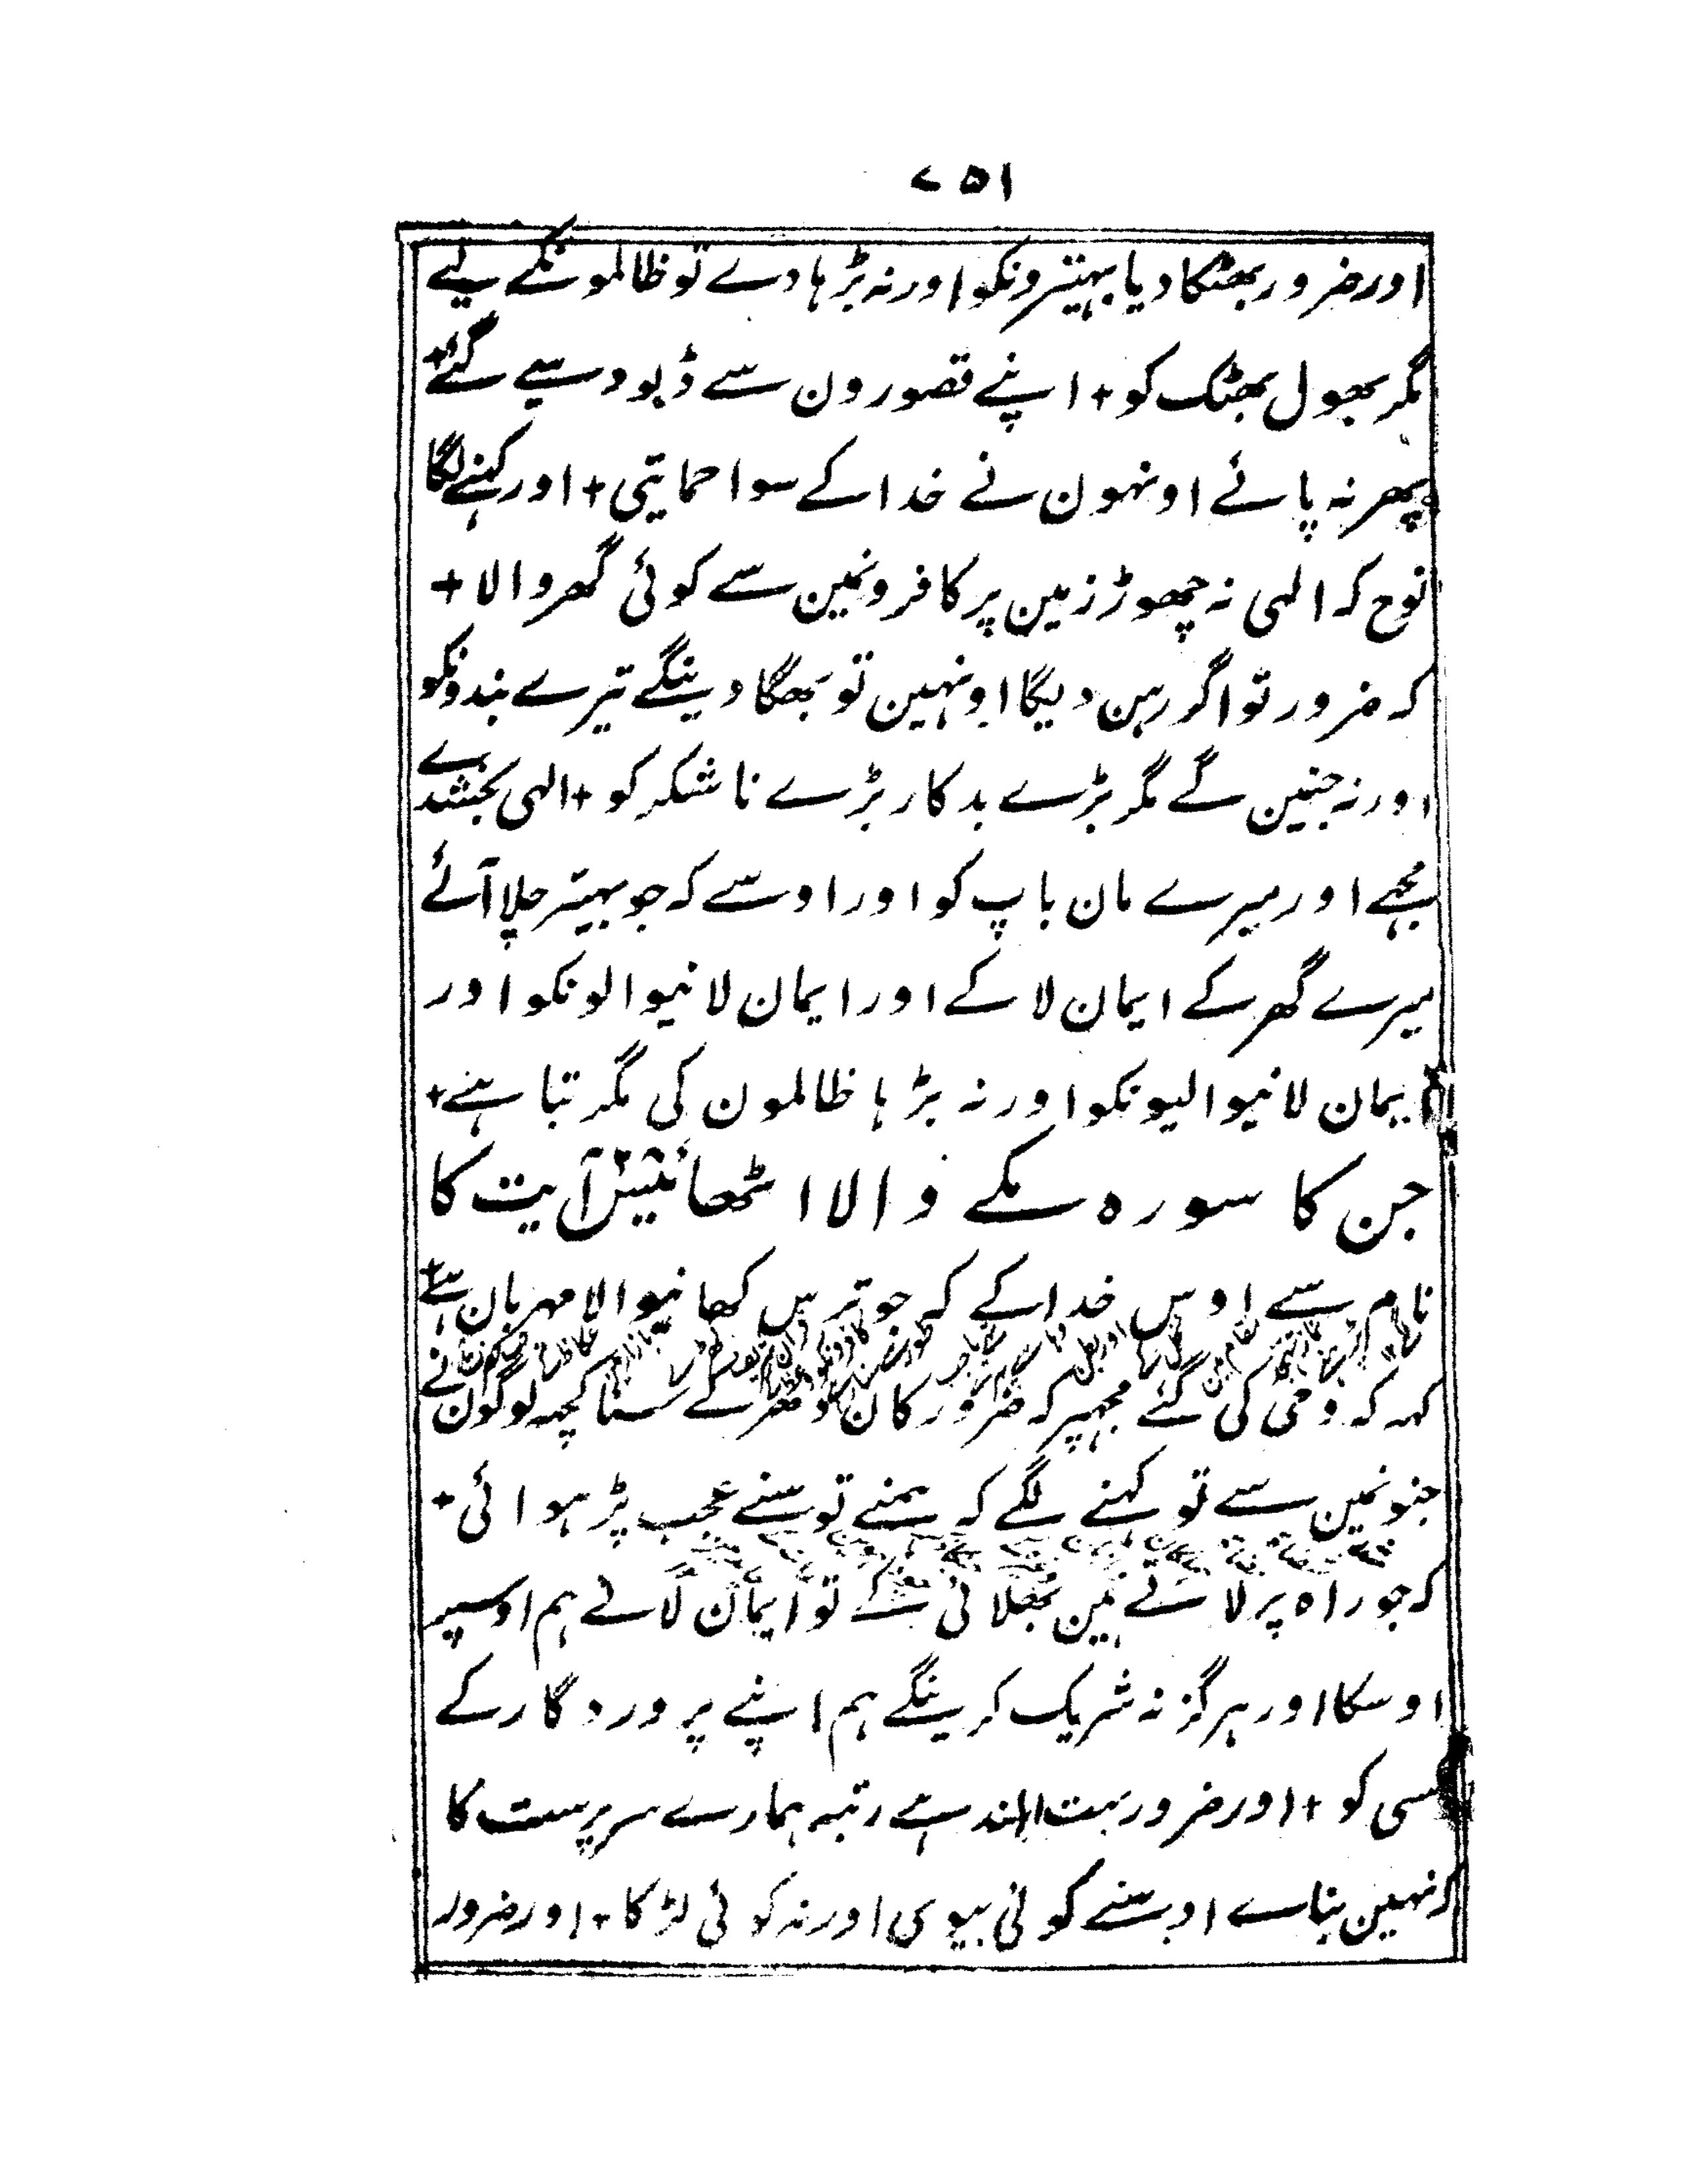 ۷۵۱
اور ضرور بھٹکا دیا بہیترونکو اور نہ بڑہا دے تو ظالمونکے لیے
مگر بھول بھٹک کو + اپنے قصورون سے ڈبو دیے گئے +
پھر نہ پائے اونہون نے خدا کے سوا حمایتی + اور کہنے لگا
نوح کہ الہی نہ چھوڑ زمین پر کافرونمین سے کوئی گھر والا +
کہ ضرور تو اگر رہن دیگا اونہین تو بھگا دینگے تیرے بندونکو
اور نہ جنین گے مگر بڑے بدکار بڑے ناشکر کو + الہی بخشدے
مجھے اور میرے مان باپ کو اور اوسے کہ جو بہیتر چلا آئے
میرے گھر کے ایمان لا کے اور ایمان لانیوالونکو اور
ایمان لانیوالیونکو اور نہ بڑہا ظالمون کی مگر تباہے +
جن کا سورہ مکے والا اٹھائیس آیت کا
نام سے اوس خدا کے کہ جو ترس کھانیوالا مہربان ہے +
کہہ کہ وحی کی گئے مجہپر کہ ضرور کان دھر کے سنا کچہہ لوگون نے
جنونمین سے تو کہنے لگے کہ ہمنے تو سنے عجب پڑہوائی +
کہ جو راہ پر لائے ہمین بھلائی کے تو ایمان لائے ہم اوسپر
اوسکا اور ہرگز نہ شریک کرینگے ہم اپنے پروردگار کے
کسی کو + اور ضرور بہت بلند ہے رتبہ ہمارے سرپرست کا
کہ نہین بنائے اوسنے کوئی بیوی اور نہ کوئی لڑکا + اور ضرور